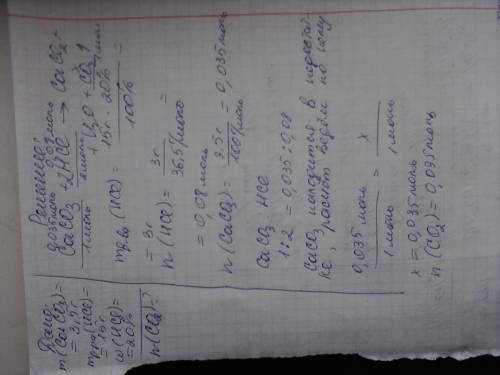 Дано:
m(CaCO3)=
= 3,5г
mр-ра(HCl)=
= 15г
w(HCl)=
=20%
n(CO2)-?
Решение:
0,035моль 0,08моль
CaCO3 + 2HCl → CaCl2+
1моль 2моль
x
+ H2O + CO2↑
1моль
mр.в.(HCl) = 15г · 20% / 100% =
= 3г
n(HCl) = 3г / 36,5г/моль =
= 0,08 моль
n(CaCO3) = 3,5г / 100г/моль = 0,035 моль
CaCO3 : HCl
1:2 = 0,035:0,08
CaCO3 находится в недостат-
ке, расчёт ведём по нему
0,035 моль / 1 моль = x / 1 моль
x = 0,035 моль
n(CO2) = 0,035 моль